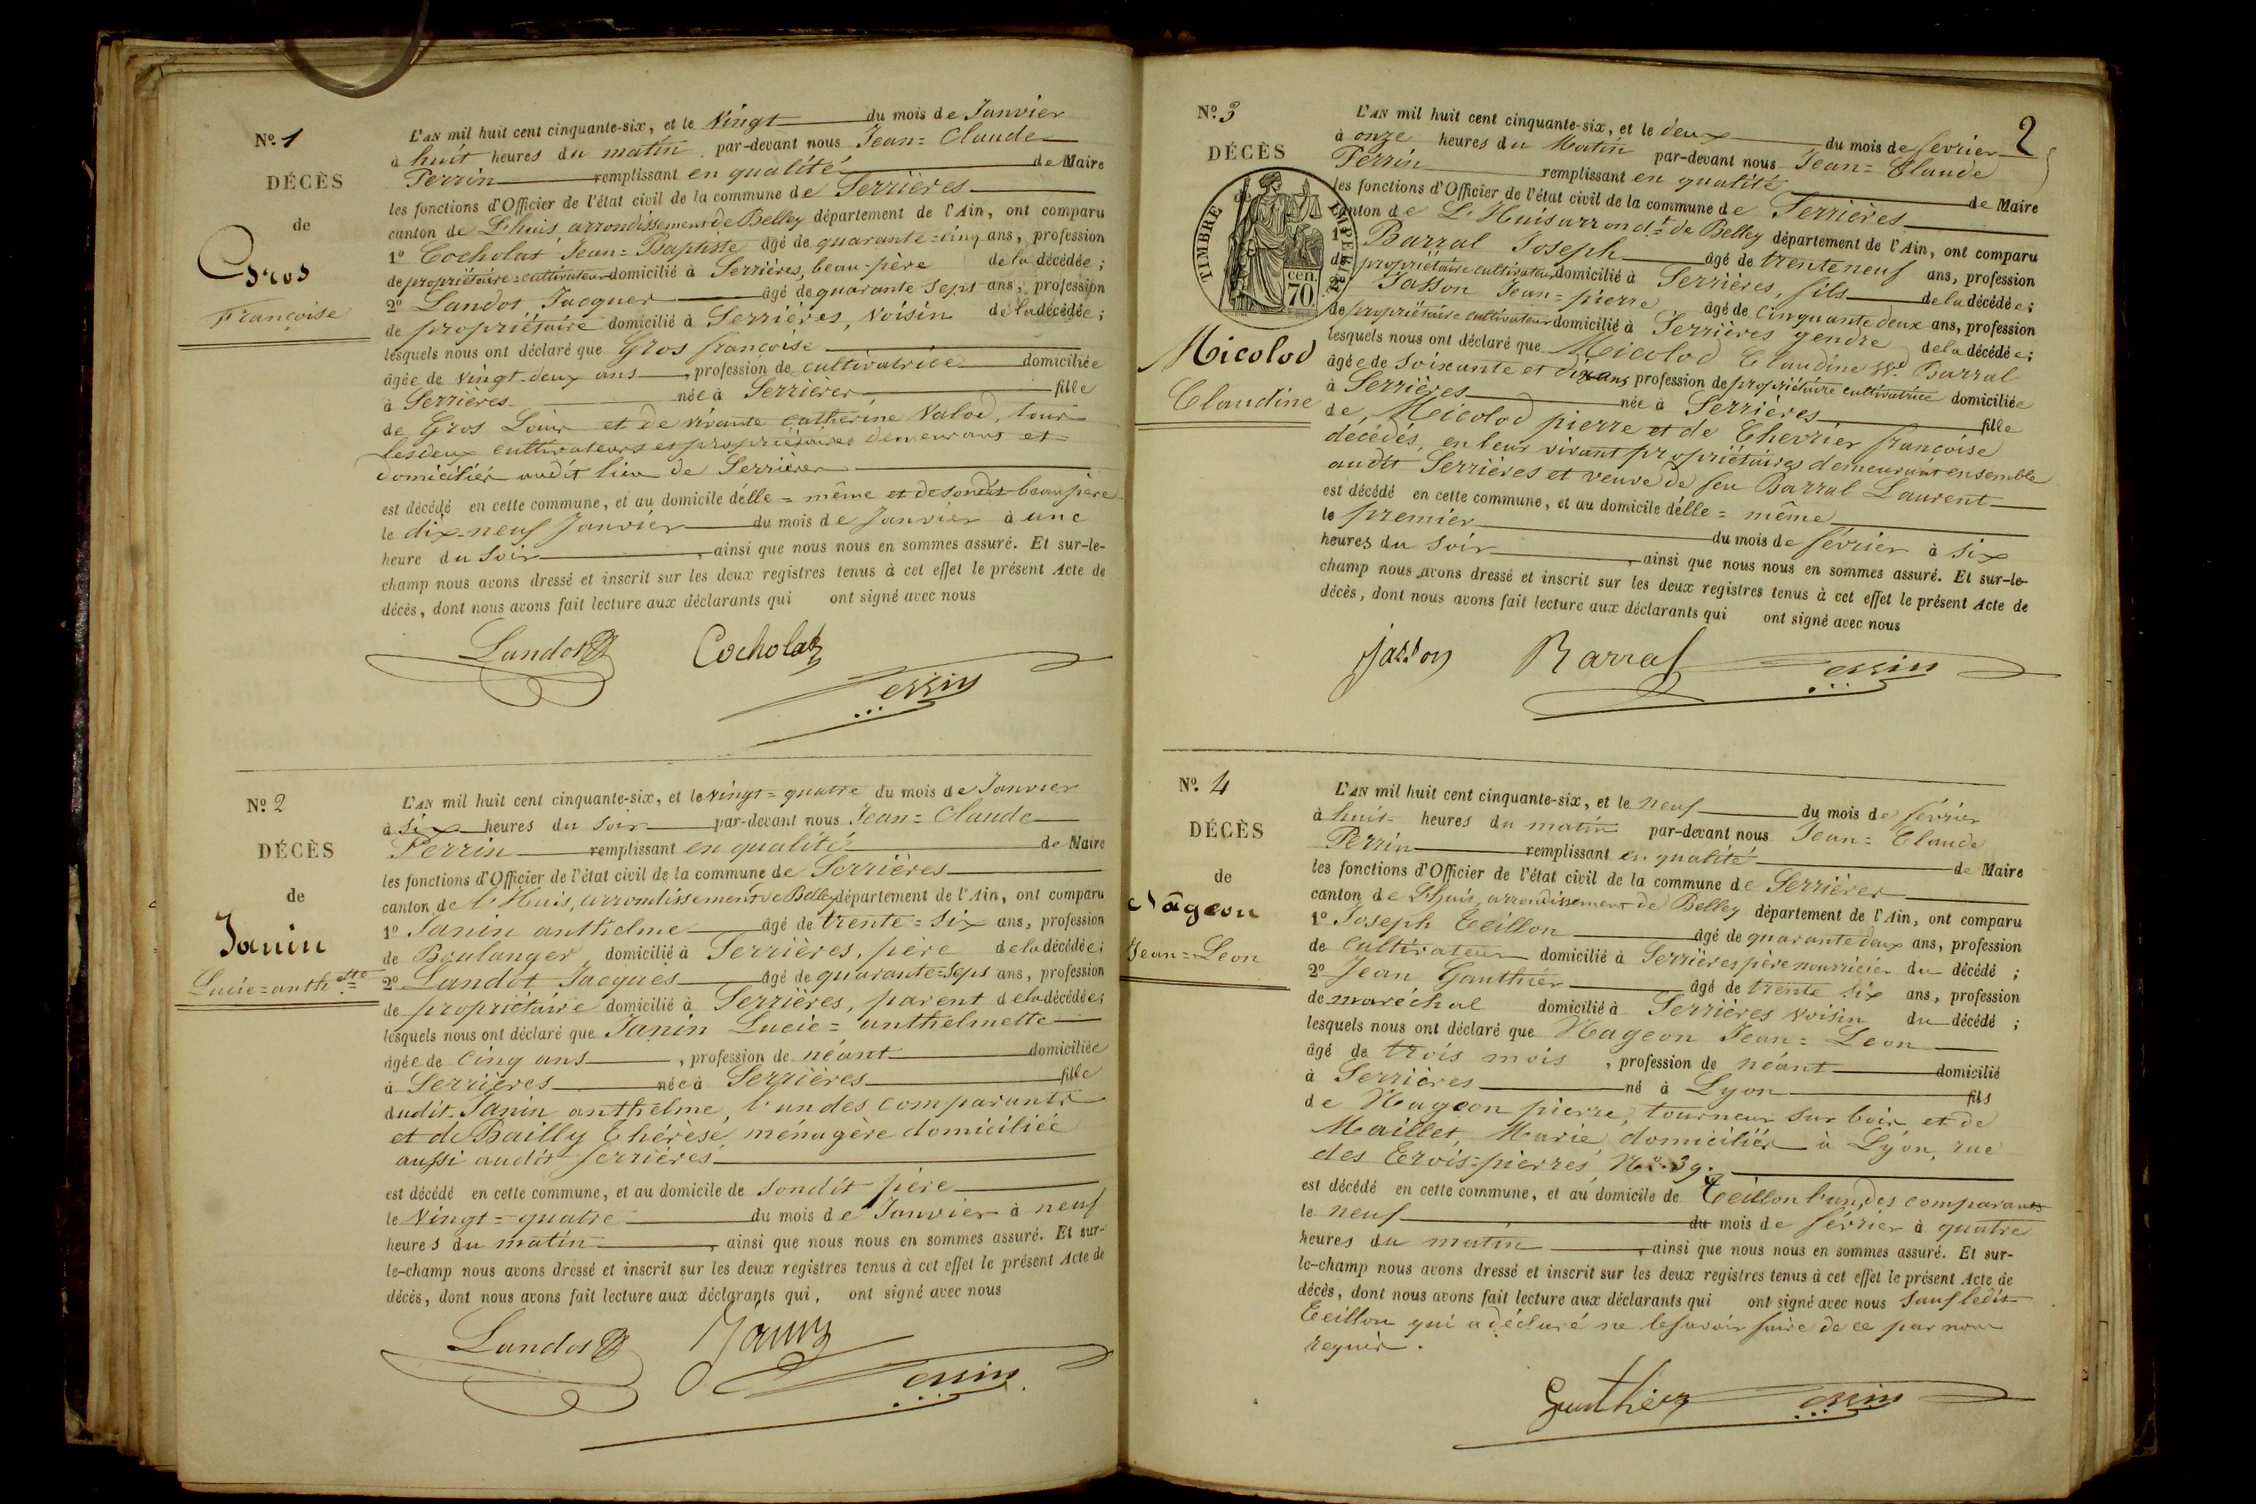 Nº 1
DÉCÈS
de
Gros
Françoise
L'AN mil huit cent cinquante-six, et le vingt du mois de Janvier
à huit heures du matin par-devant nous Jean=Claude
Perrin remplissant en qualité de Maire
les fonctions d'Officier de l'état civil de la commune de Serrières
canton de L'huis arrondissement de Belley département de l'Ain, ont comparu
1º Cocholat Jean=Baptiste âgé de quarante=cinq ans, profession
de propriétaire=cultivateur domicilié à Serrières, beau-père de la décédée ;
2º Landot Jacques âgé de quarante sept ans, profession
de propriétaire domicilié à Serrières, voisin de la décédée ;
lesquels nous ont déclaré que Gros françoise
âgée de vingt-deux ans, profession de cultivatrice domiciliée
à Serrières née à Serrières fille
de Gros Louis et de vivante catherine Valod, tous
les deux cultivateurs et propriétaires demeurans et
domiciliés audit lieu de Serrières
est décédé en cette commune, et au domicile d'elle=même et de sondit beau père
le dix-neuf Janvier du mois de Janvier à une
heure du soir, ainsi que nous nous en sommes assuré. Et sur-le-
champ nous avons dressé et inscrit sur les deux registres tenus à cet effet le présent Acte de
décès, dont nous avons fait lecture aux déclarants qui ont signé avec nous
Landot Cocholat
Perrin
Nº 2
DÉCÈS
de
Janin
Lucie=anth.ette
L'AN mil huit cent cinquante-six, et le vingt=quatre du mois de Janvier
à six heures du soir par-devant nous Jean=Claude
Perrin remplissant en qualité de Maire
les fonctions d'Officier de l'état civil de la commune de Serrières
canton de l'Huis, arrondissement de Belley département de l'Ain, ont comparu
1º Janin anthelme âgé de trente=six ans, profession
de Boulanger domicilié à Serrières, père de la décédée ;
2º Landot Jacques âgé de quarante=sept ans, profession
de propriétaire domicilié à Serrières, parent de la décédée ;
lesquels nous ont déclaré que Janin Lucie=anthelmette
âgée de cinq ans, profession de néant domiciliée
à Serrières née à Serrières fille
dudit Janin anthelme, l'un des comparants
et de Bailly Thérèse, ménagère domiciliée
aussi audit serrières
est décédé en cette commune, et au domicile de sondit père
le vingt=quatre du mois de Janvier à neuf
heures du matin, ainsi que nous nous en sommes assuré. Et sur-
le-champ nous avons dressé et inscrit sur les deux registres tenus à cet effet le présent Acte de
décès, dont nous avons fait lecture aux déclarants qui, ont signé avec nous
Landot Janin
Perrin
2
Nº 3
DÉCÈS
de
TIMBRE IMPÉRIAL
70 cen.
Micolod
Claudine
L'AN mil huit cent cinquante-six, et le deux du mois de février
à onze heures du Matin par-devant nous Jean=Claude
Perrin remplissant en qualité de Maire
les fonctions d'Officier de l'état civil de la commune de Serrières
canton de L'Huis arrond.t de Belley département de l'Ain, ont comparu
1º Barral Joseph âgé de trente neuf ans, profession
de propriétaire cultivateur domicilié à Serrières, fils de la décédée ;
Jasson Jean=pierre âgé de cinquante deux ans, profession
de propriétaire cultivateur domicilié à Serrières gendre de la décédée ;
lesquels nous ont déclaré que Micolod Claudine Ve Barral
âgée de soixante et dix ans profession de propriétaire cultivatrice domiciliée
à Serrières née à Serrières fille
de Micolod pierre et de Chevrier françoise
décédés, en leur vivant propriétaires demeurant ensemble
audit Serrières et veuve de feu Barral Laurent
est décédé en cette commune, et au domicile d'elle=même
le premier du mois de février à six
heures du soir, ainsi que nous nous en sommes assuré. Et sur-le-
champ nous avons dressé et inscrit sur les deux registres tenus à cet effet le présent Acte de
décès, dont nous avons fait lecture aux déclarants qui ont signé avec nous
Jasson Barral Perrin
Nº 4
DÉCÈS
de
Nâgeon
Jean=Leon
L'AN mil huit cent cinquante-six, et le neuf du mois de février
à huit heures du matin par-devant nous Jean=Claude
Perrin remplissant en qualité de Maire
les fonctions d'Officier de l'état civil de la commune de Serrières
canton de L'huis, arrondissement de Belley département de l'Ain, ont comparu
1º Joseph Teillon âgé de quarante deux ans, profession
de cultivateur domicilié à Serrières père nourricier du décédé ;
2º Jean Gauthier âgé de trente six ans, profession
de maréchal domicilié à Serrières voisin du décédé ;
lesquels nous ont déclaré que Nageon Jean=Leon
âgé de trois mois, profession de néant domicilié
à Serrières né à Lyon fils
de Nageon pierre, tourneur sur bois et de
Maillet Marie domiciliés à Lyon, rue
des Trois=pierres Nº. 39.
est décédé en cette commune, et au domicile de Teillon l'un des comparants
le neuf du mois de février à quatre
heures du matin, ainsi que nous nous en sommes assuré. Et sur-
le-champ nous avons dressé et inscrit sur les deux registres tenus à cet effet le présent Acte de
décès, dont nous avons fait lecture aux déclarants qui ont signé avec nous sauf ledit
Teillon qui a déclaré ne le savoir faire de ce par nous
requis.
Gauthier Perrin